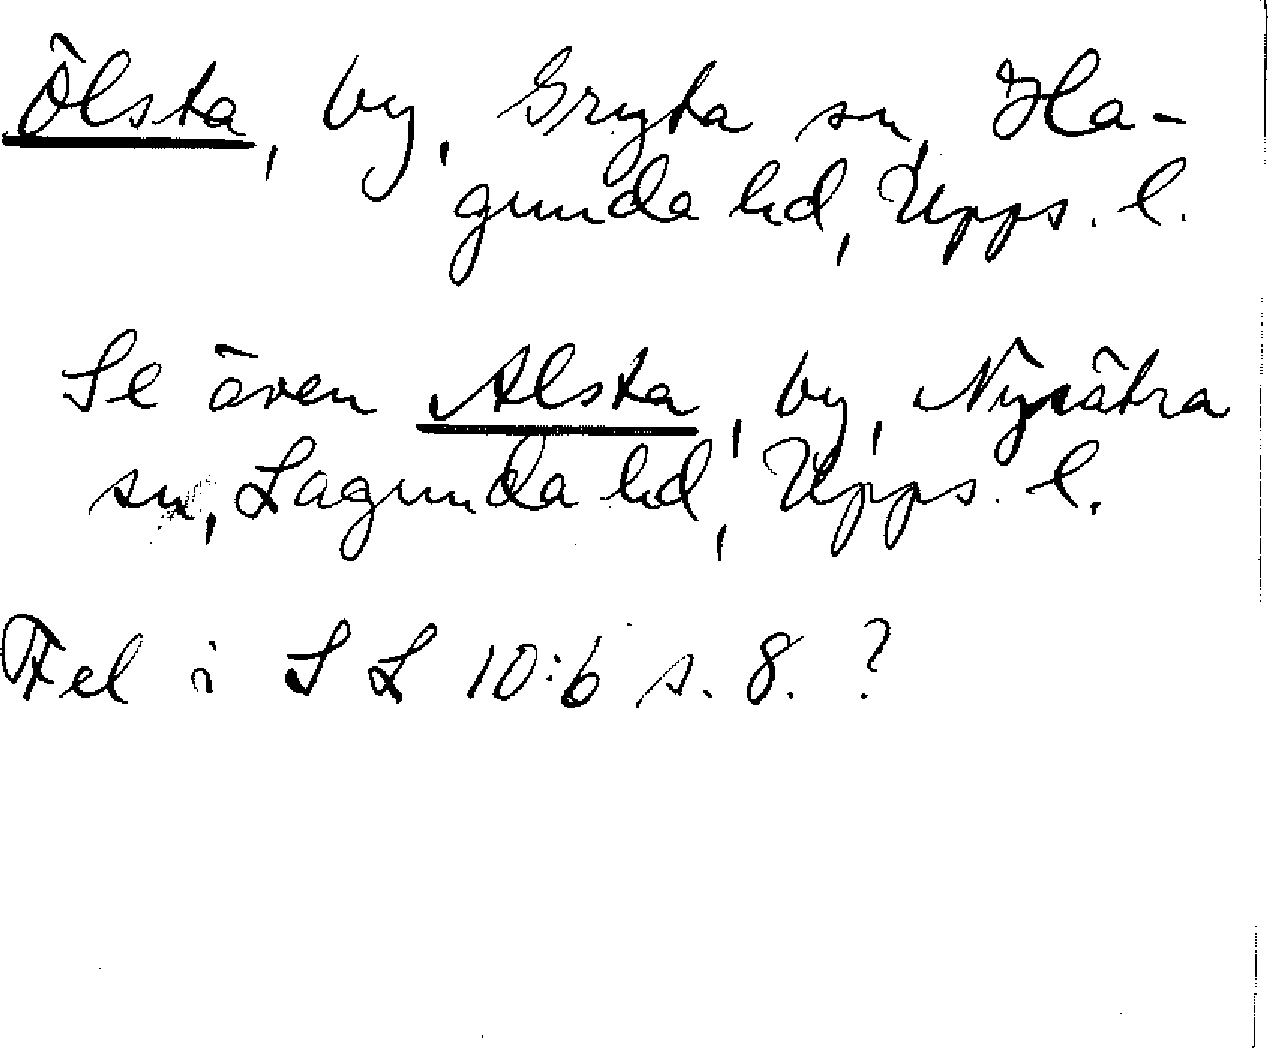 Ölsta, by, Gryta sn, Ha-
gunda hd, Upps. l.
Se även Alsta, by, Nysätra
sn, Lagunda hd, Upps. l.
Fel i SL 10:6 s. 8. ?